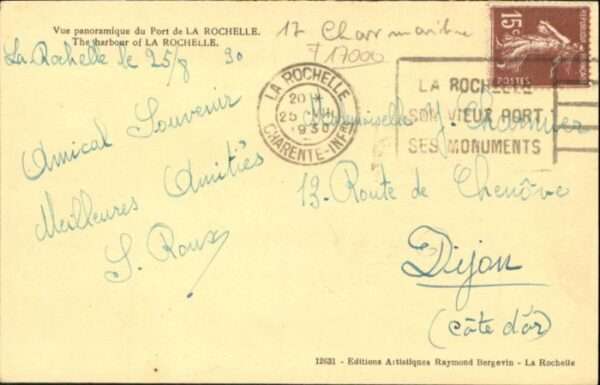 Vue panoramique du Port de LA ROCHELLE.
The harbour of LA ROCHELLE.
17 Charr maritime
17000
RÉPUBLIQUE FRANÇAISE
15c
POSTES
La Rochelle le 25/8 30
LA ROCHELLE
20 H
25
1930
CHARENTE-INFRE
LA ROCHELLE
SON VIEUX PORT
SES MONUMENTS
Amical Souvenir
Meilleures Amitiés
S. Roux
Mademoiselle Y. Charmier
13. Route de Chenôve
Dijon
(Côte d'or)
12631 - Editions Artistiques Raymond Bergevin - La Rochelle